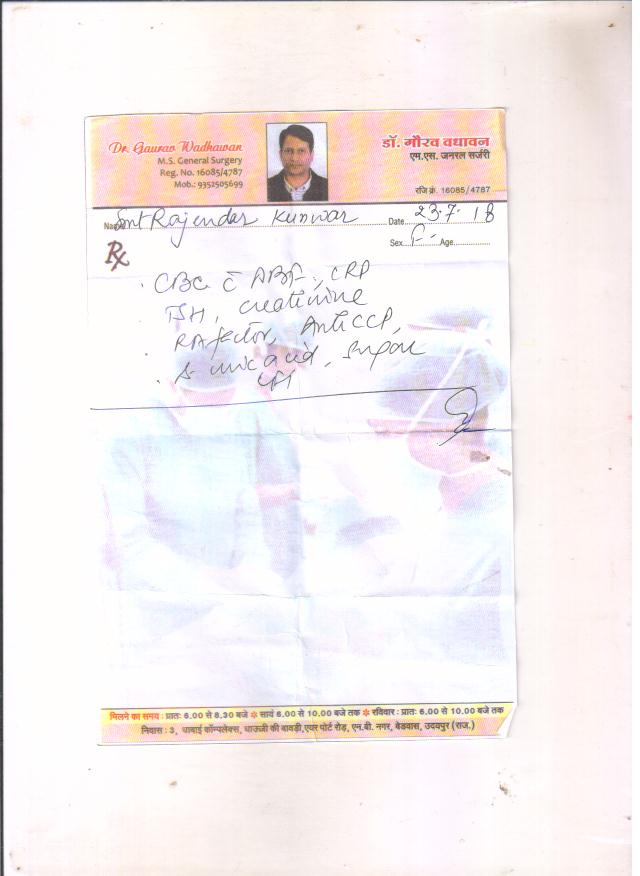 Dr. Gaurav Wadhawan
M.S. General Surgery
Reg. No. 16085/4787
Mob.: 9352505699
डॉ. गौरव वधावन
एम.एस. जनरल सर्जरी
रजि क्रं. 16085/4787
Name Smt Rajendar Kunwar Date 23.7.18
Sex F. Age
Rx
CBC c̄ , CRP
TSH, creatinine
RA factor, Anti CCP,
S. uric acid, Sugar
मिलने का समय : प्रातः 6.00 से 8.30 बजे ❉ सायं 6.00 से 10.00 बजे तक ❉ रविवार : प्रातः 6.00 से 10.00 बजे तक
निवास : 3, धाबाई कॉम्पलेक्स, धाऊजी की बावड़ी, एयर पोर्ट रोड़, एम.बी. नगर, बेडवास, उदयपुर (राज.)